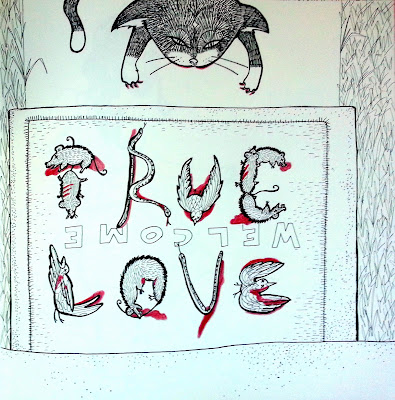 TRUE
WELCOME
LOVE